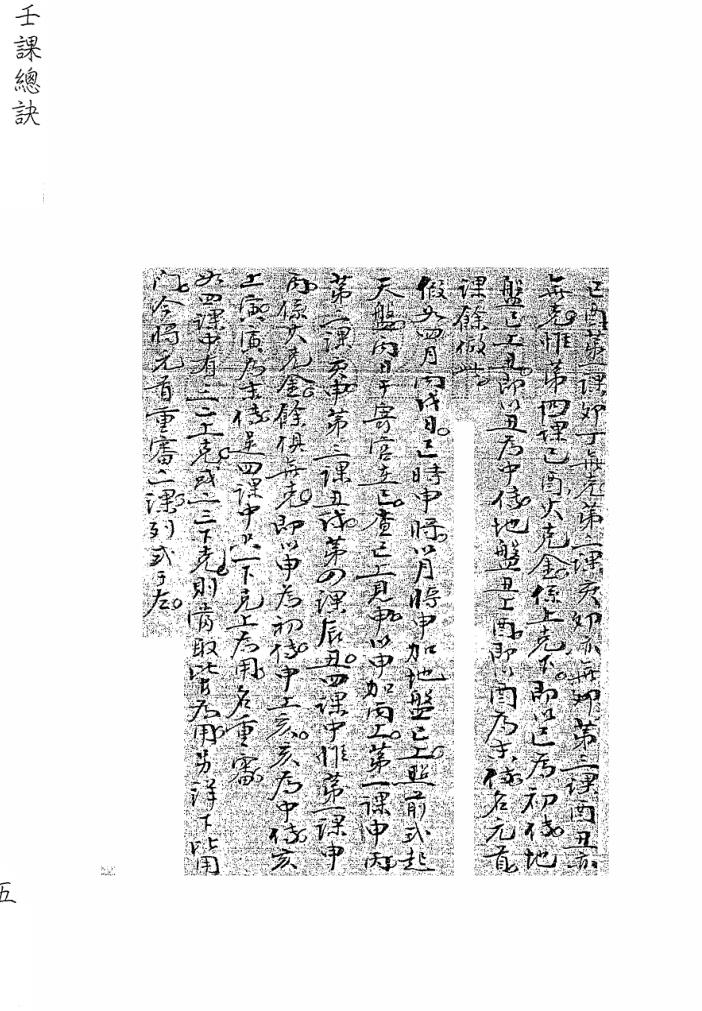 壬課總訣
已酉第一課卯丁無克第二課亥卯亦無卯第三課酉丑亦
無克惟第四課巳酉火克金係上克下即以巳為初傳地
盤巳上丑即以丑為中傳地盤丑上酉即以酉為末傳名元首
課餘倣此
假如四月丙戌日巳時申將以月將申加地盤巳上照前式起
天盤丙日干寄宮在巳查巳上見申以申加丙上第一課申丙
第二課亥申第三課丑戌第四課辰丑四課中惟第一課申
丙係火克金餘俱無克即以申為初傳申上亥亥為中傳亥
上寅寅為末傳是四課中只一下克上為用名重審
如四課中有二三上克或二三下克則須取比者為用另詳下比用
門今將元首重審二課列式于左
五